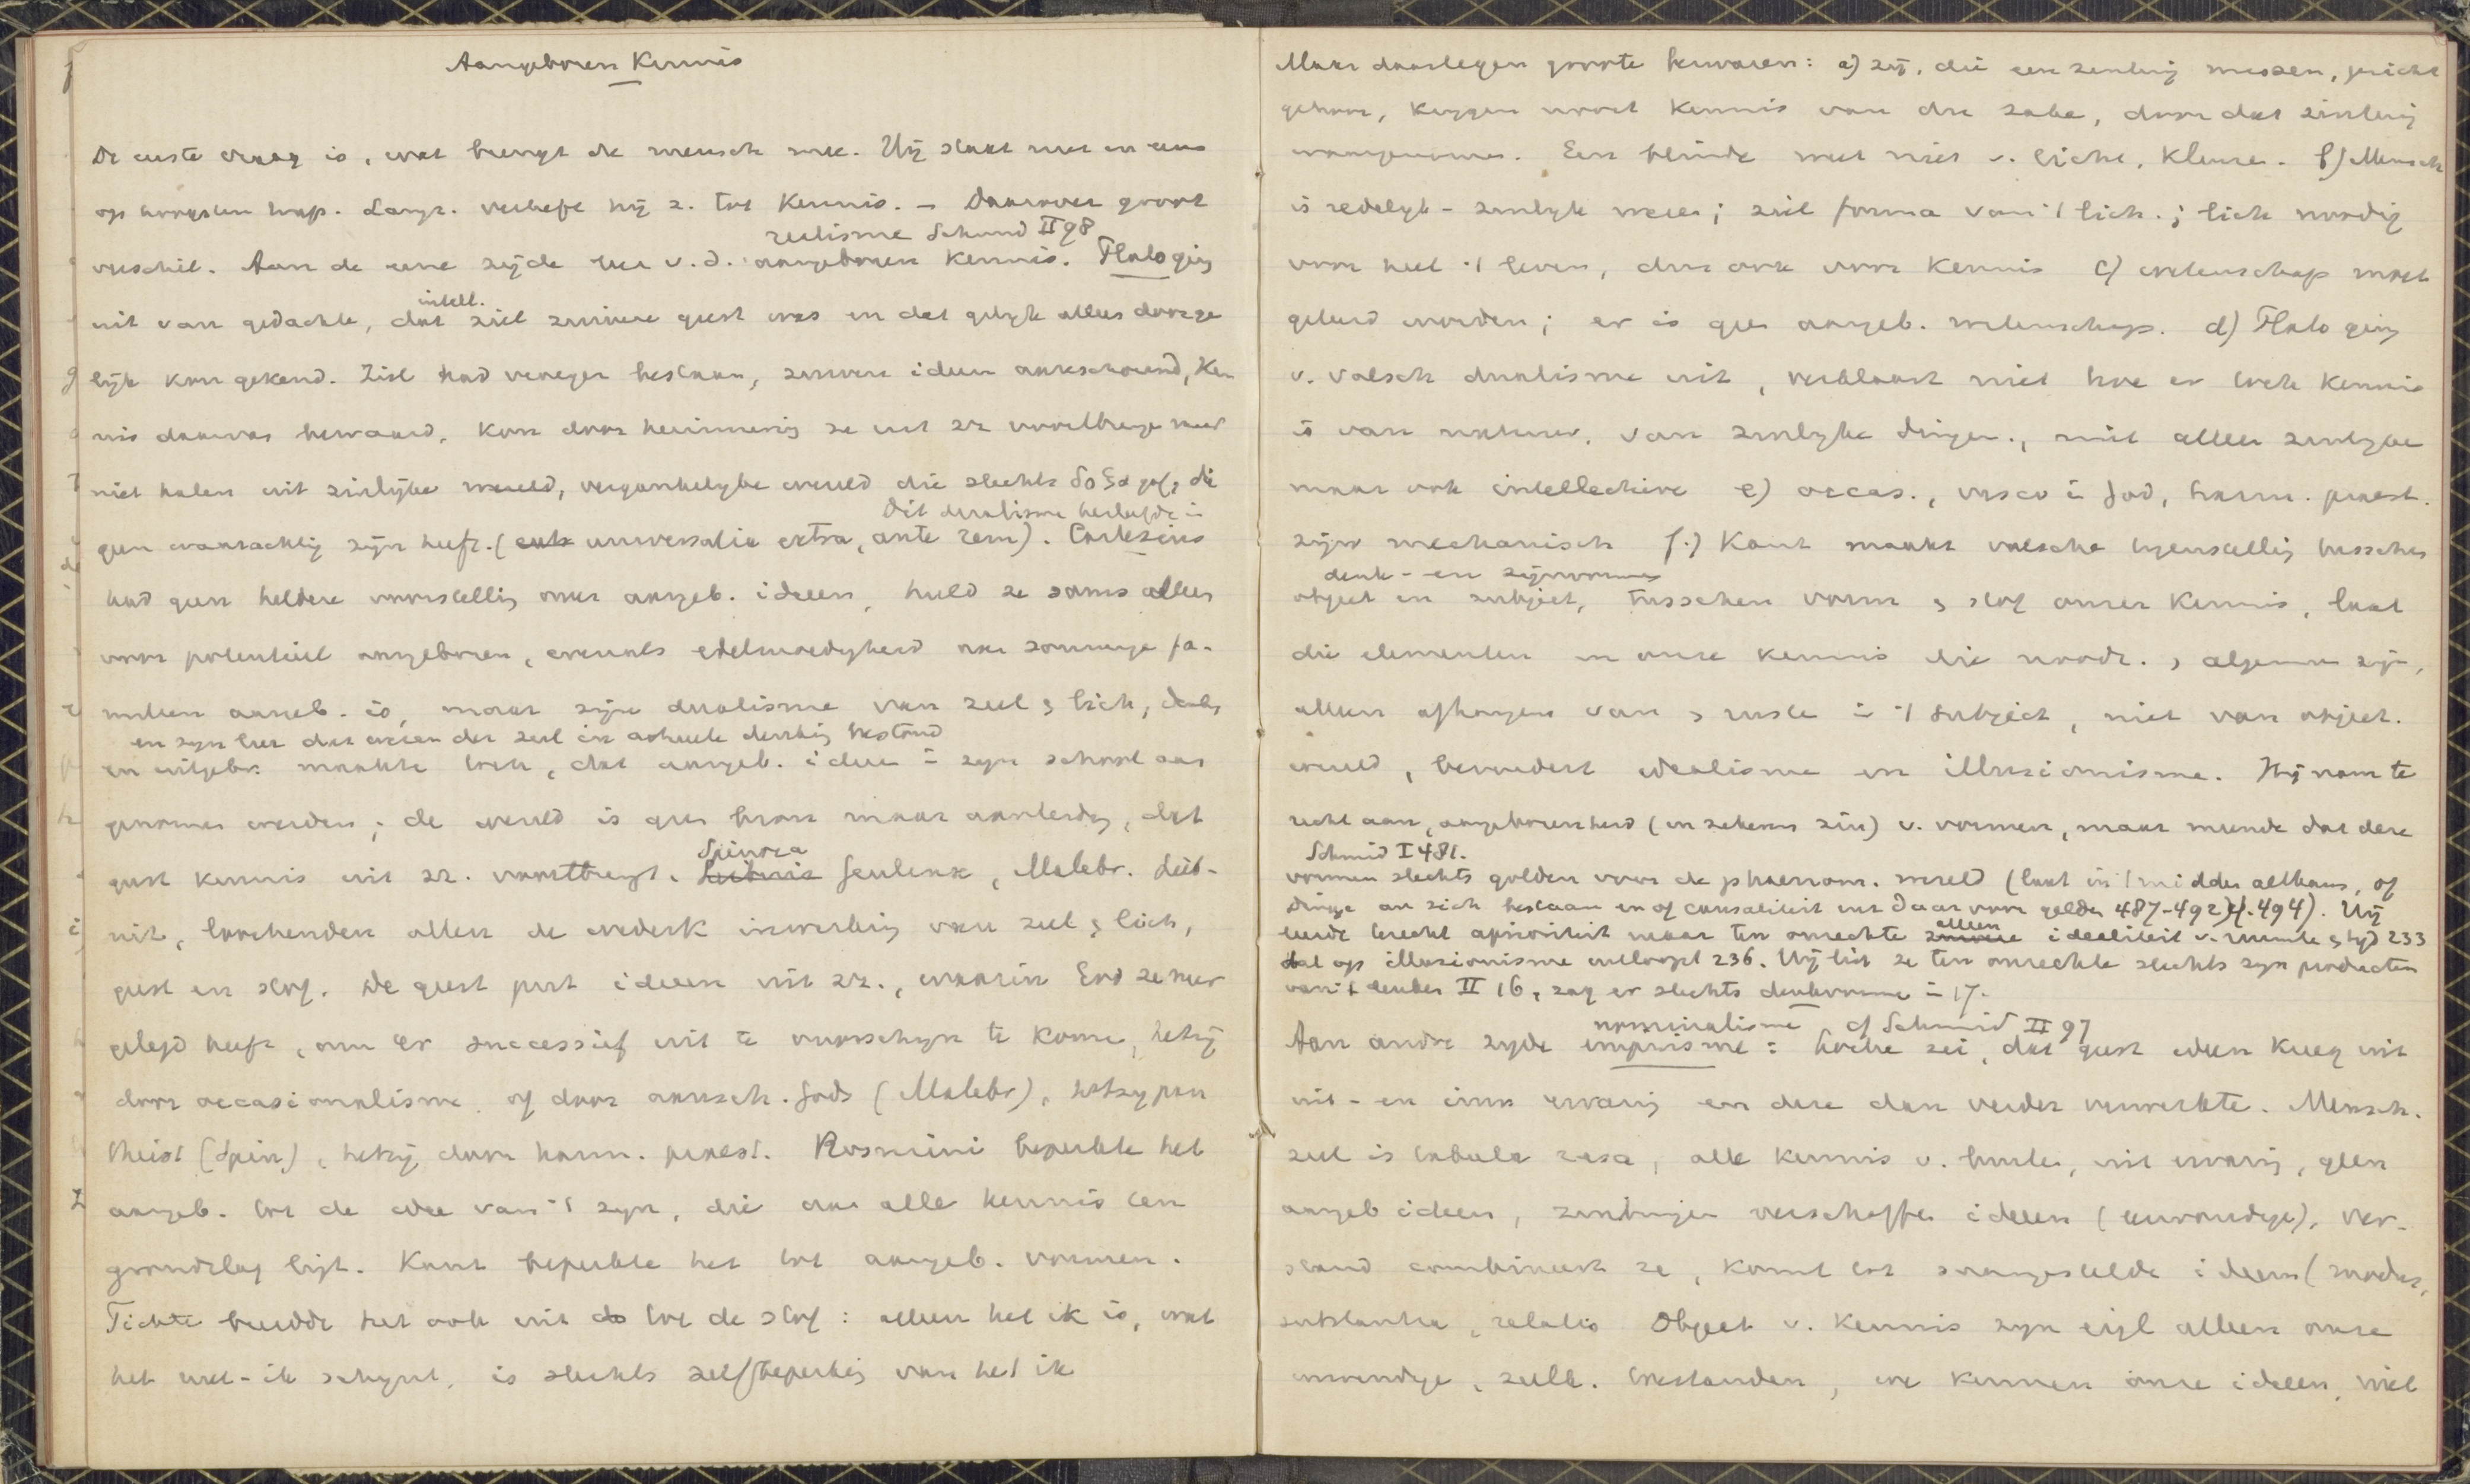 Aangeboren Kennis
De eerste vraag is, wat brengt de mensch mee. Hij staat niet in eens
op hoogsten trap. Langz. verheft hij z. tot Kennis. – Daarover groot
realisme Schmid II 98
verschil. Aan de eene zijde leer v. d. aangeboren Kennis. Plato ging
intell.
uit van gedachte, dat ziel zuivere geest was en dat gelijk alleen door ge
lijk kon gekend. Ziel had vroeger bestaan, zuivere ideeen aanschouwd, Ken
nis daarvan bewaard, kon door herinnering ze uit zz voortbrengen maar
niet halen uit zinlijke wereld, vergankelijke wereld die slechts δοξα gaf, die
Dit dualisme herleefde in
geen waarachtig zijn heeft. (universalia extra, ante rem). Cartesius
had geen heldere voorstelling onzer aangeb. ideeen, hield ze soms alleen
voor potentieel aangeboren, evenals edelmoedigheid aan sommige fa-
milien aangeb. is, maar zijn dualisme van ziel & lich, denk.
en zijn leer dat wezen der ziel in actueele denking bestond
en uitgebr. maakte toch, dat aangeb. ideeen in zijn school aan
genomen werden; de wereld is geen bron maar aanleiding, dat
Spinoza
geest kennis uit zz. voortbrengt. Leibniz Geulinx, Malebr. Leib-
nitz, loochenden allen de wederk inwerking van ziel & lich,
geest en stof. De geest put ideeen uit zz., waarin God ze neer
gelegd heeft, om er successief uit te voorschijn te komen, hetzij
door occasionalisme of door aansch. Gods (Malebr), hetzij pan
theist (Spin), hetzij door harm. praest. Rosmini beperkte het
aangeb. tot de idee van 't zijn, die aan alle kennis ten
grondslag ligt. Kant beperkte het tot aangeb. vormen.
Fichte breidde het ook uit tot de stof: alleen het ik is, wat
het niet-ik schijnt, is slechts zelfbeperking van het ik
Maar daartegen groote bezwaren: a) zij, die een zintuig missen, gezicht
gehoor, krijgen nooit kennis van die zake, door dat zintuig
waargenomen. Een blinde weet niet v. licht, kleuren. b) Mensch
is redelijk-zinlijk wezen; ziel forma van 't lich.; lich noodig
voor heel 't leven, dus ook voor kennis c) wetenschap moet
geleerd worden; er is geen aangeb. wetenschap. d) Plato ging
v. valsch dualisme uit, verklaart niet hoe er toch kennis
is van natuur, van zinlijke dingen, niet alleen zinlijke
maar ook intellectieve e) occas., visio in God, harm. praest.
zijn mechanisch f.) Kant maakt valsche tegenstelling tusschen
denk- en zijnvormen
object en subject, tusschen vorm & stof onzer kennis, laat
die elementen in onze kennis die noodz. & algemeen zijn,
alleen afhangen van & ruste in 't subject, niet van object.
wereld, bevordert idealisme en illusionisme. Hij nam te
recht aan, aangeborenheid (in zekeren zin) v. vormen, maar meende dat deze
Schmid I 481.
vormen slechts golden voor de phaenom. wereld (laat in 't midden althans, of
dinge an sich bestaan en of causaliteit ook daarvoor gelde 487-492) cf. 494). Hij
alleen
leerde terecht aprioriteit maar ten onrechte zuivere idealiteit v. ruimte & tijd 233
dat op illusionisme uitloopt 236. Hij liet ze ten onrechte slechts zijn producten
van 't denken II 16, zag er slechts denkvormen in 17.
nominalisme cf Schmid II 97
Aan andre zijde empirisme: Locke zei, dat geest ideen kreeg uit
uit- en inw ervaring en deze dan verder verwerkte. Mensch.
ziel is tabula rasa, alle kennis v. buiten, uit ervaring, geen
aangeb ideeen, zintuigen verschaffen ideeen (eenvoudige), ver-
stand combineert ze, komt tot saamgestelde ideeen (modus,
substantia, relatio Object v. kennis zijn eigl alleen onze
inwendige, ziele. toestanden, we kennen onze ideeen, niet